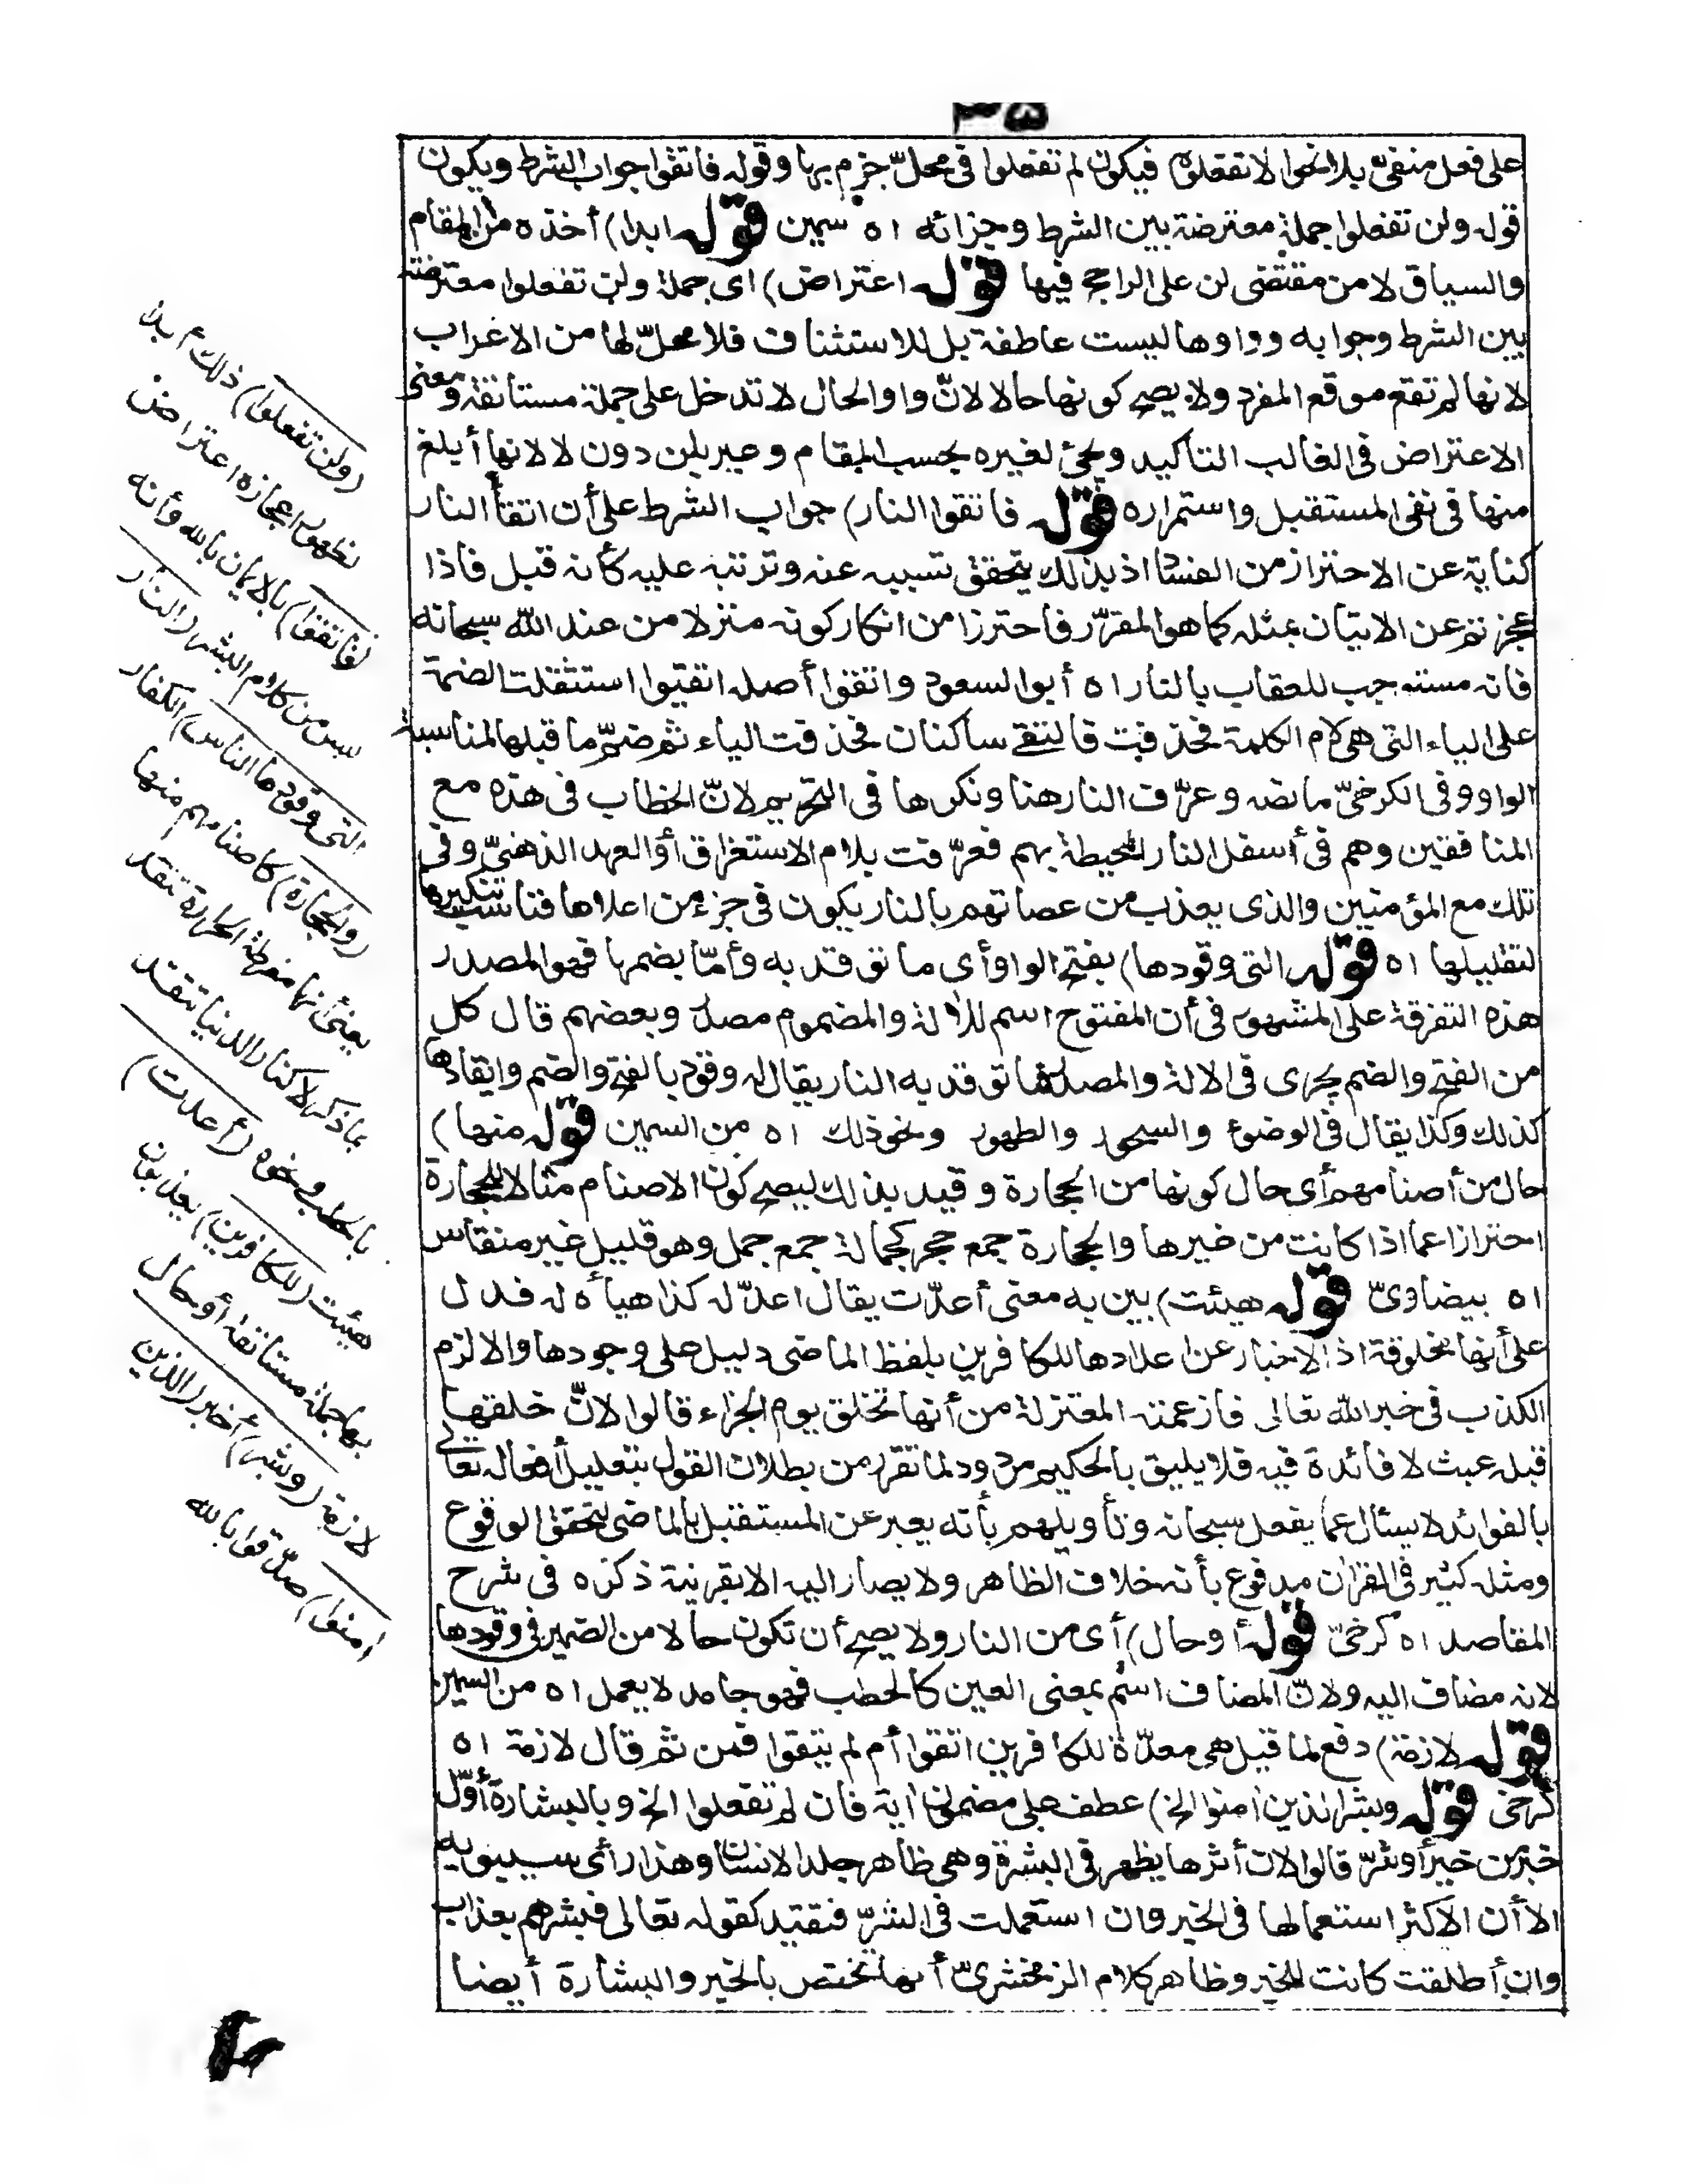 ٣٥
على فعل منفىّ بلا نحوا لا تفعلوه فيكون لم تفعلوا فى محلّ جزم بها وقوله فاتقوا جواب الشرط ويكون
قوله ولن تفعلوا جملة معترضة بين الشرط وجزائه اه سمين قوله ابدا) أخذه من المقام
والسياق لا من مقتضى لن على الراجح فيها قوله اعتراض) اى جملة ولن تفعلوا معترضة
بين الشرط وجوابه وواوها ليست عاطفة بل للاستئناف فلا محلّ لها من الاعراب
لانها لم تقع موقع المفرد ولا يصح كونها حالا لانّ واو الحال لا تدخل على جملة مستانفة ومعنى
الاعتراض فى الغالب التاكيد ويجئ لغيره بحسب المقام وعبر بلن دون لا لانها أبلغ
منها فى نفى المستقبل واستمراره قوله فاتقوا النار) جواب الشرط على أن اتقأ النار
كناية عن الاحتراز من الفساد اذ بذلك يتحقق تسببه عنه وترتبه عليه كأنه قيل فاذا
عجزتم عن الاتيان بمثله كما هو المقرّر فاحترزا من انكار كونه منزلا من عند الله سبحانه
فانه مستوجب للعقاب بالنار اه أبو السعود واتقوا أصله اتقيوا استثقلت الضمة
على الياء التى هى لام الكلمة فحذفت فالتقى ساكنان فحذفت الياء ثم ضمّ ما قبلها لمناسبة
الواو وفى الكرخىّ ما نصه وعرّف النار هنا ونكرها فى التحريم لانّ الخطاب فى هذه مع
المنافقين وهم فى أسفل النار المحيطة بهم فعرّفت بلام الاستغراق أو العهد الذهنىّ وفى
تلك مع المؤمنين والذى يعذب من عصاتهم بالنار يكون فى جزء من اعلاها فناسب تنكيرها
لتقليلها اه قوله التى وقودها) بفتح الواو أى ما توقد به وأمّا بضمها فهو المصدر
هذه التفرقة على المشهور فى أن المفتوح اسم للآلة والمضموم مصدر وبعضهم قال كل
من الفتح والضم يجرى فى الالة والمصدر فما توقد به النار يقال له وقود بالفتح والضم وايقادها
كذلك وكذا يقال فى الوضوء والسحور والطهور ونحو ذلك اه من السمين قوله منها)
حال من أصنامهم أى حال كونها من الحجارة وقيد بذلك ليصح كون الاصنام مثالا للحجارة
احترازا عما اذا كانت من غيرها والحجارة جمع حجر كجمالة جمع جمل وهو قليل غير منقاس
اه بيضاوىّ قوله هيئت) بين به معنى أعدّت يقال اعدّ له كذا هيأه له فدل
على أنها مخلوقة اذ الاخبار عن اعدادها للكافرين بلفظ الماضى دليل على وجودها والا لزم
الكذب فى خبر الله تعالى فما زعمته المعتزلة من أنها تخلق يوم الجزاء قالوا لانّ خلقها
قبله عبث لا فائدة فيه فلا يليق بالحكيم مردود لما تقرر من بطلان القول بتعليل أفعاله تعالى
بالفوائد لا يسئال عما يفعل سبحانه وتأويلهم بأنه يعبر عن المستقبل بالماضى لتحقق الوقوع
ومثله كثير فى القرآن مدفوع بأنه خلاف الظاهر ولا يصار اليه الا بقرينة ذكره فى شرح
المقاصد اه كرخىّ قوله أو حال) أى من النار ولا يصح أن تكون حالا من الضمير فى وقودها
لانه مضاف اليه ولانّ المضاف اسم بمعنى العين كالحطب فهو جامد لا يعمل اه من السمين
قوله لازمة) دفع لما قيل هى معدّة للكافرين اتقوا أم لم يتقوا فمن ثم قال لازمة اه
كرخى قوله وبشر الذين آمنوا الخ) عطف على مضمون آية فان لم تفعلوا الخ وبالبشارة أوّل
خبر من خير أو شرّ قالوا لان أثرها يظهر فى البشرة وهى ظاهر جلد الانسان وهذا رأى سيبويه
الا أن الاكثر استعمالها فى الخير وان استعملت فى الشرّ فبقيد كقوله تعالى فبشرهم بعذاب
وان أطلقت كانت للخير وظاهر كلام الزمخشرىّ أنها تختص بالخير والبشارة أيضا
(ولن تفعلوا) ذلك أبدا
لظهور اعجازه اعتراض
(فاتقوا) بالايمان بالله وأنه
ليس من كلام البشر (النار
التى وقودها الناس) الكفار
(والحجارة) كاصنامهم منها
يعنى أنها مفرطة الحرارة تتقد
بما ذكر لا كنار الدنيا تتقد
بالحطب ونحوه (أعدت)
هيئت (للكافرين) يعذبون
بها جملة مستانفة أو حال
لازمة (وبشر) أخبر (الذين
امنوا) صدّقوا بالله